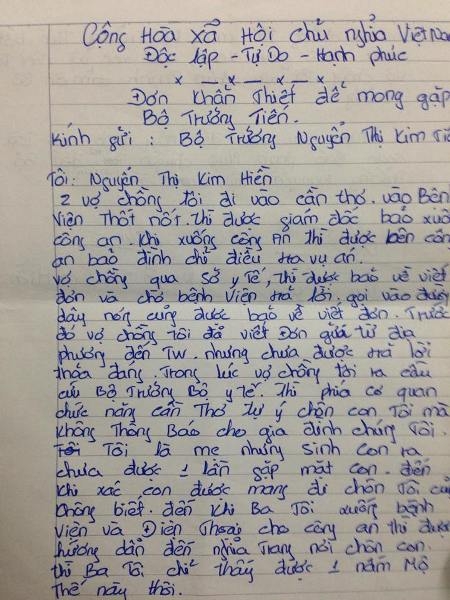 Cộng Hòa Xã Hội chủ nghĩa Việt Nam
Độc lập - Tự Do - Hạnh phúc
x — x — x — x
Đơn Khẩn Thiết để mong gặp
Bộ Trưởng Tiến.
Kính gửi : Bộ Trưởng Nguyễn Thị Kim Tiế
Tôi: Nguyễn Thị Kim Hiền
2 vợ chồng tôi đi vào cần thơ. vào Bên
Viện Thốt nốt. thì được giám đốc bảo xuố
công an. Khi xuống công An thì được bên côn
an bảo đình chỉ điều tra vụ án.
vợ chồng qua Sở y Tế, thì được bảo về viết
đơn và chờ bệnh Viện trả lời, gọi vào đường
dây nóng cũng được bảo về viết đơn. Trước
đó vợ chồng tôi đã viết Đơn gửi từ địa
phương đến TW. nhưng chưa được trả lời
thỏa đáng. Trong lúc vợ chồng tôi ra cầu
cứu Bộ Trưởng Bộ y tế. Thì phía cơ quan
chức năng cần Thơ tự ý chôn con Tôi mà
không Thông Báo cho gia đình chúng Tôi.
Tôi là mẹ nhưng sinh con ra
chưa được 1 lần gặp mặt con. đến
khi xác con được mang đi chôn Tôi cũ
không biết. đến khi Ba Tôi xuống bệnh
Viện và Điện Thoại cho công an thì đượ
hướng dẫn đến nghĩa Trang nơi chôn con.
thì Ba Tôi chỉ thấy được 1 nấm Mộ
Thế này thôi.